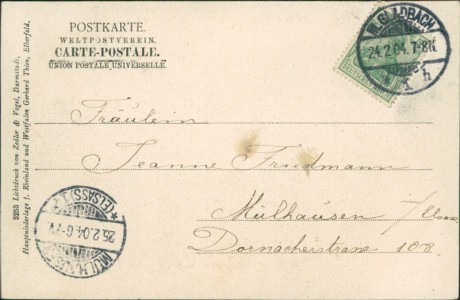 POSTKARTE.
WELTPOSTVEREIN.
CARTE-POSTALE.
UNION POSTALE UNIVERSELLE.
M.GLADBACH
24.2.04.7-8N.
1 h
Fräulein
Jeanne Friedmann
Mülhausen i/Elsass
Dornacherstrasse 108
(ELSASS) 1
25.2.04.6-7V.
MÜLHAUSEN
2253 Lichtdruck von Zedler & Vogel, Darmstadt.
Hauptniederlage f. Rheinland und Westfalen Gerhard Thien, Elberfeld.